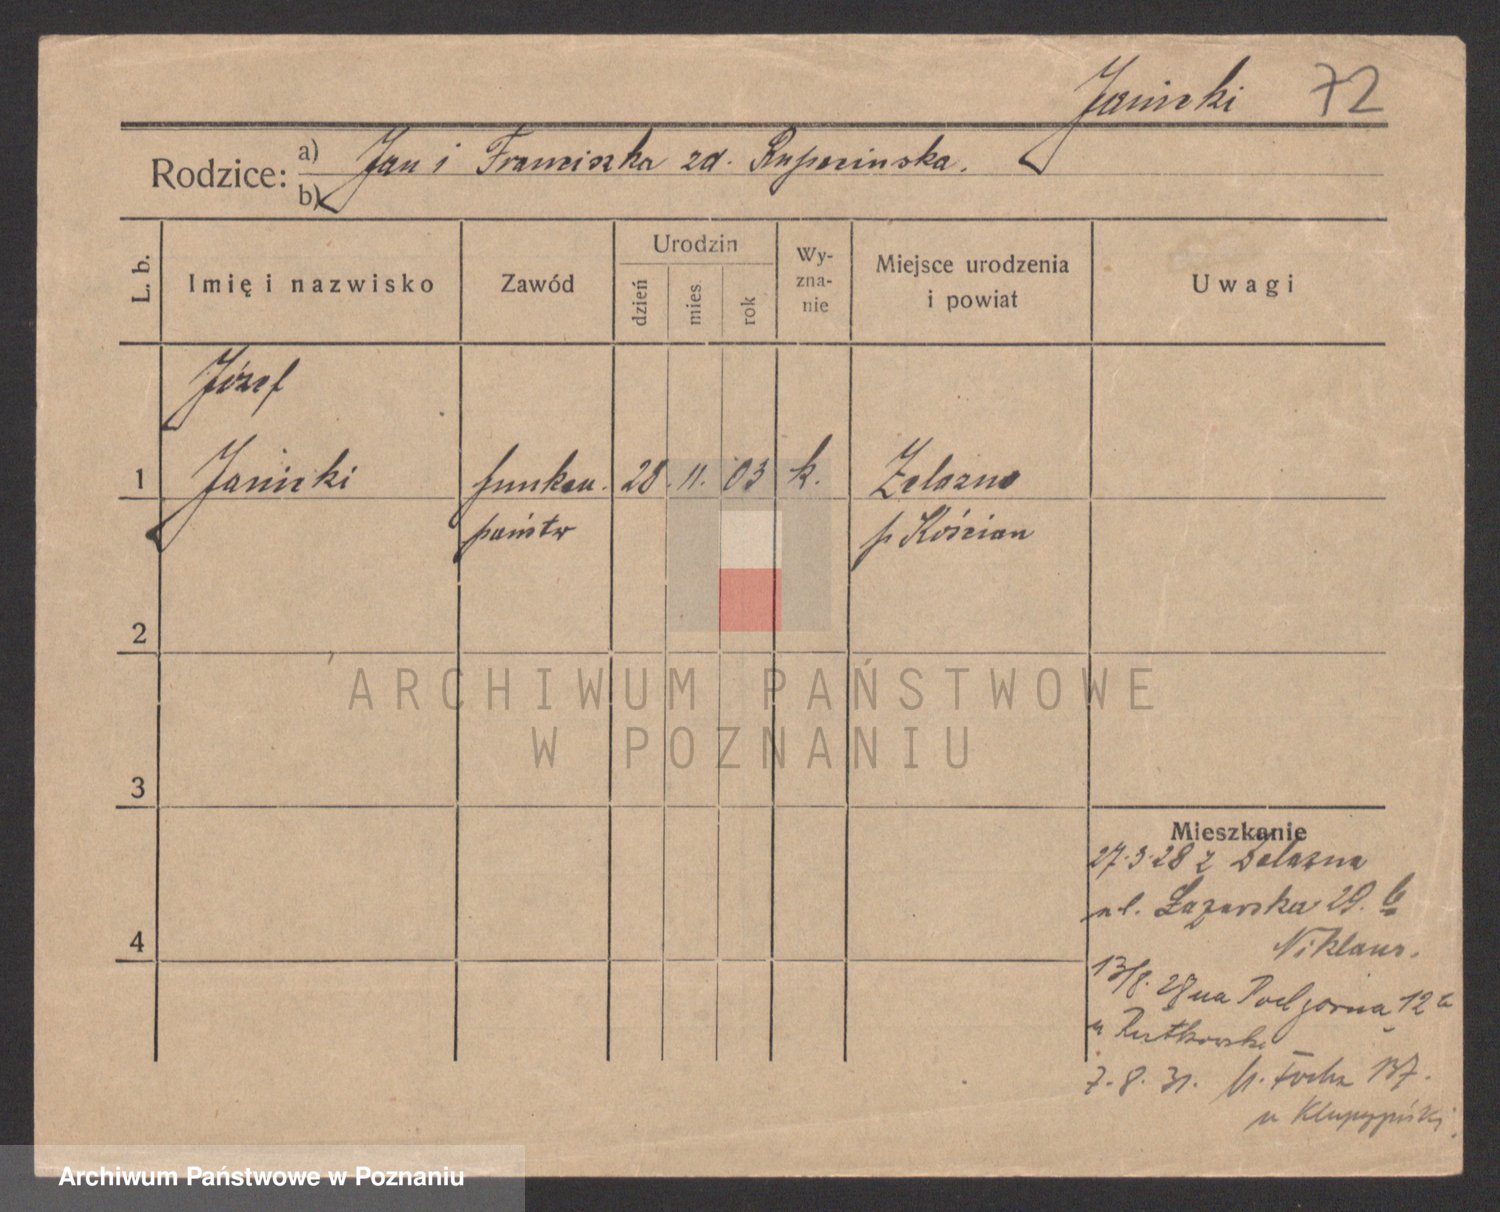 Janicki 72
Rodzice: a) Jan i Franciszka zd.
b)
L. b. Imię i nazwisko Zawód Urodzin dzień mies. rok Wy-zna-nie Miejsce urodzenia i powiat Uwagi
Józef
1 Janicki funkcu. 28. 11. 03 k. Żelazno
państw p Kościan
2
ARCHIWUM PAŃSTWOWE
W POZNANIU
3
Mieszkanie
27.3.28 z Żelazna
ul. Łazarska 29.
4
Niklaus.
13/8. 28 na Podgorna 12a
u Rutkowski
7. 8. 31. Focha 137.
u
Archiwum Państwowe w Poznaniu